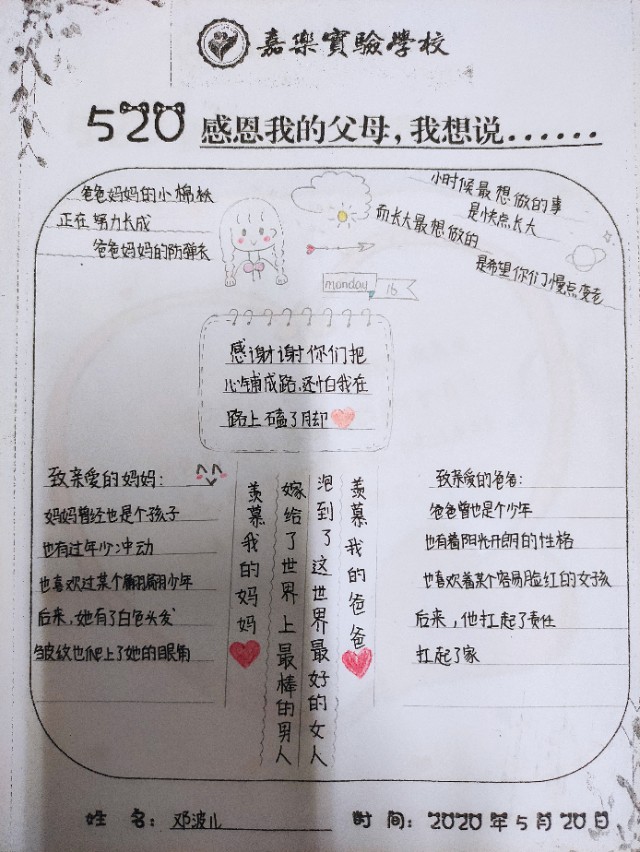 嘉樂實驗學校
520 感恩我的父母，我想说......
爸爸妈妈的小棉袄
正在努力长成
爸爸妈妈的防弹衣
小时候最想做的事
是快点长大
而长大最想做的
是希望你们慢点变老
monday 16
感谢谢你们把
心铺成路，还怕我在
路上磕了脚
致亲爱的妈妈：
妈妈曾经也是个孩子
也有过年少冲动
也喜欢过某个翩翩少年
后来，她有了白色头发
皱纹也爬上了她的眼角
羡慕我的妈妈
嫁给了世界上最棒的男人
泡到了这世界最好的女人
羡慕我的爸爸
致亲爱的爸爸：
爸爸曾也是个少年
也有着阳光开朗的性格
也喜欢着某个容易脸红的女孩
后来，他扛起了责任
扛起了家
姓 名：邓波儿 时 间：2020年5月20日